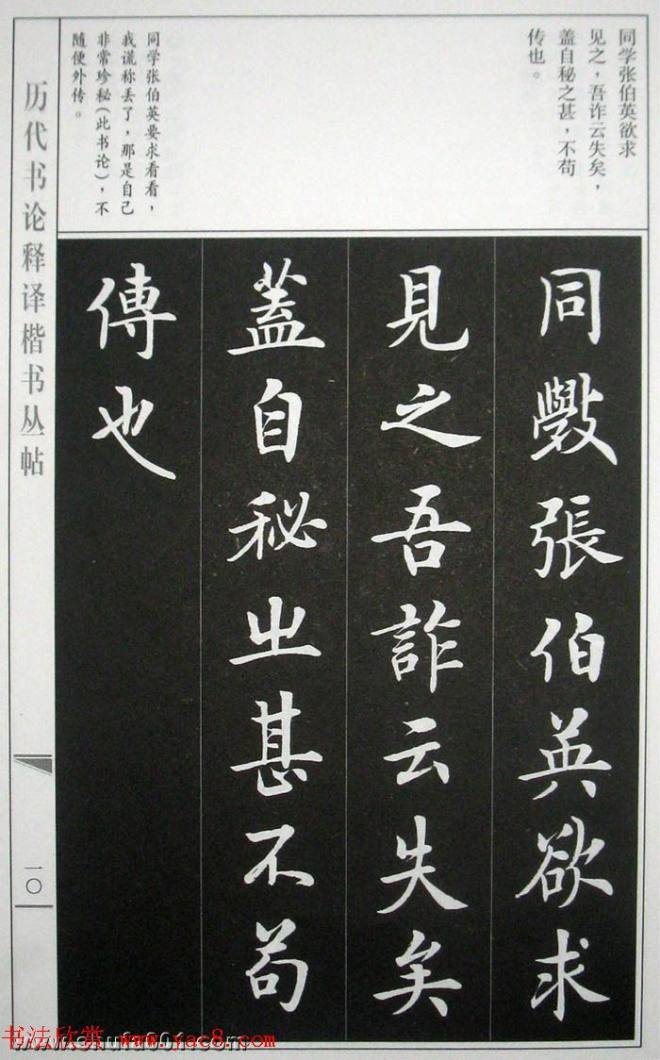 同学张伯英欲求
见之，吾诈云失矣，
盖自秘之甚，不苟
传也。
同学张伯英要求看看，
我谎称丢了，那是自己
非常珍秘（此书论），不
随便外传。
历代书论释译楷书丛帖
一〇
同斅張伯英欲求
見之吾詐云失矣
蓋自秘㞢甚不苟
傳也
书法欣赏 www.yac8.com